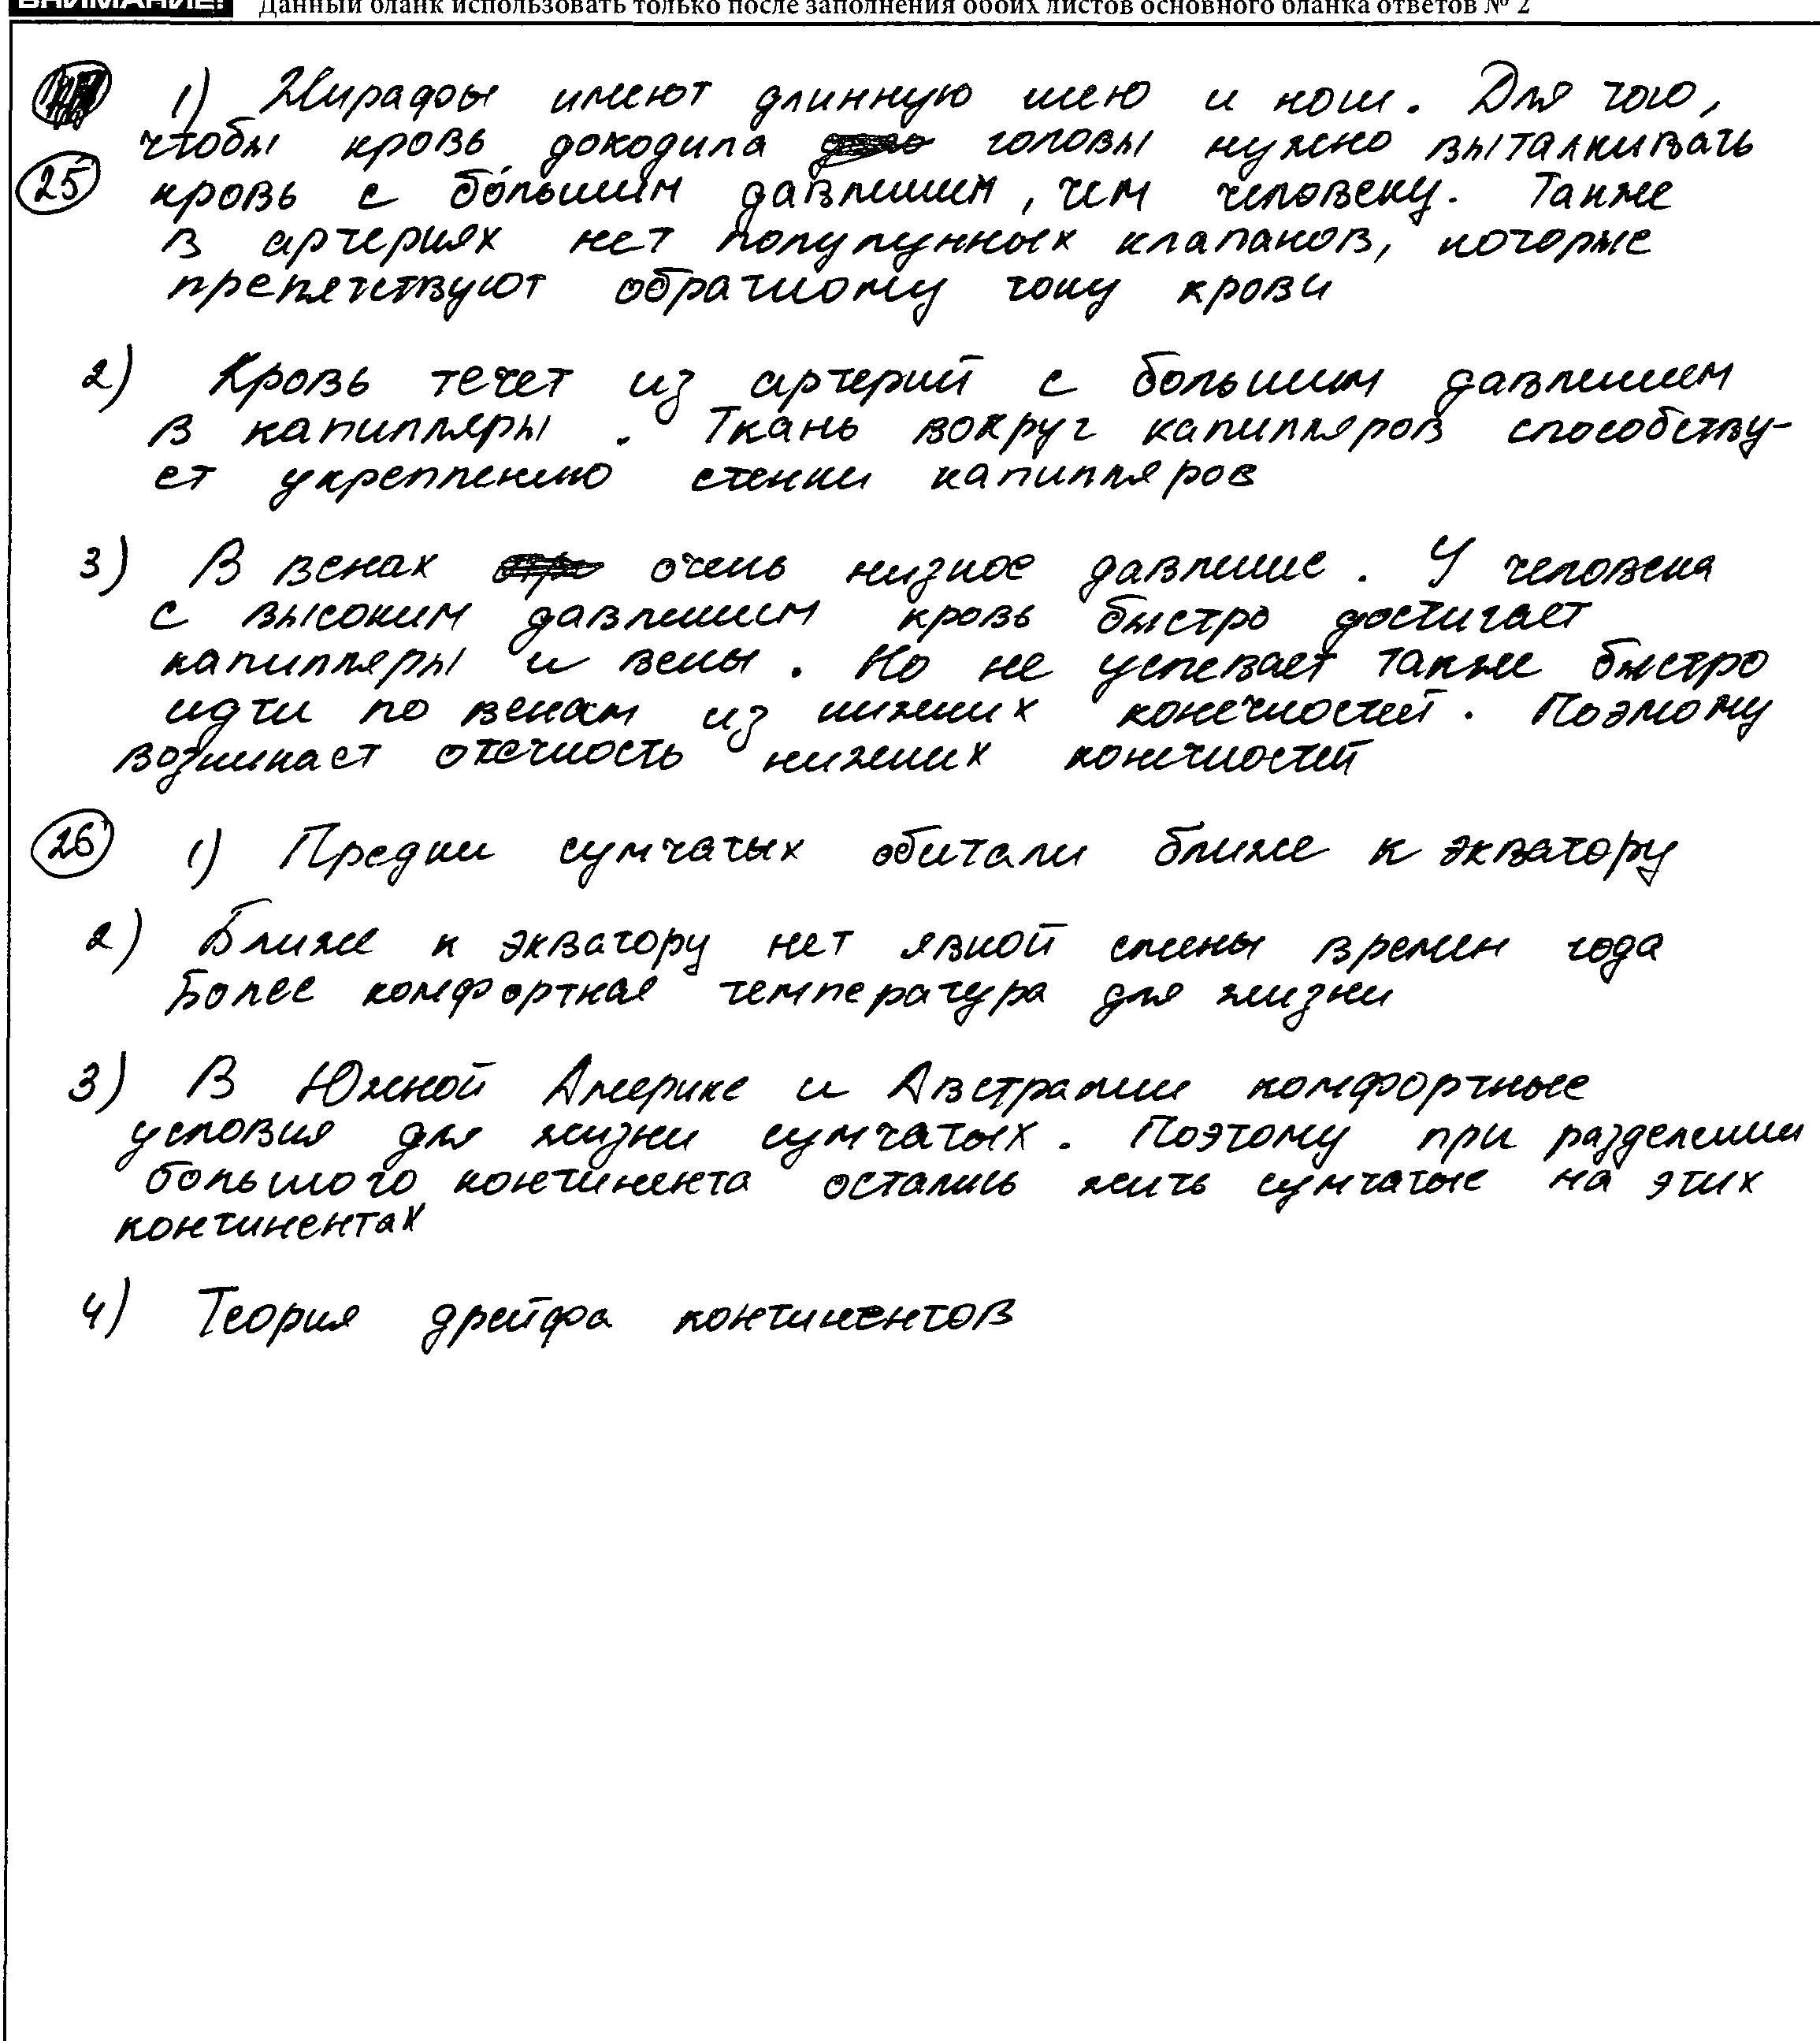 ВНИМАНИЕ! Данный бланк использовать только после заполнения обоих листов основного бланка ответов № 2
1) Жирафы имеют длинную шею и ноги. Для того,
чтобы кровь доходила головы нужно выталкивать
25 кровь с бо́льшим давлением, чем человеку. Также
в артериях нет полулунных клапанов, которые
препятствуют обратному току крови
2) Кровь течет из артерий с большим давлением
в капилляры. Ткань вокруг капилляров способству-
ет укреплению стенки капилляров
3) В венах очень низкое давление. У человека
с высоким давлением кровь быстро достигает
капилляры и вены. Но не успевает также быстро
идти по венам из нижних конечностей. Поэтому
возникает отечность нижних конечностей
26 1) Предки сумчатых обитали ближе к экватору
2) Ближе к экватору нет явной смены времен года
Более комфортная температура для жизни
3) В Южной Америке и Австралии комфортные
условия для жизни сумчатых. Поэтому при разделении
большого континента остались жить сумчатые на этих
континентах
4) Теория дрейфа континентов